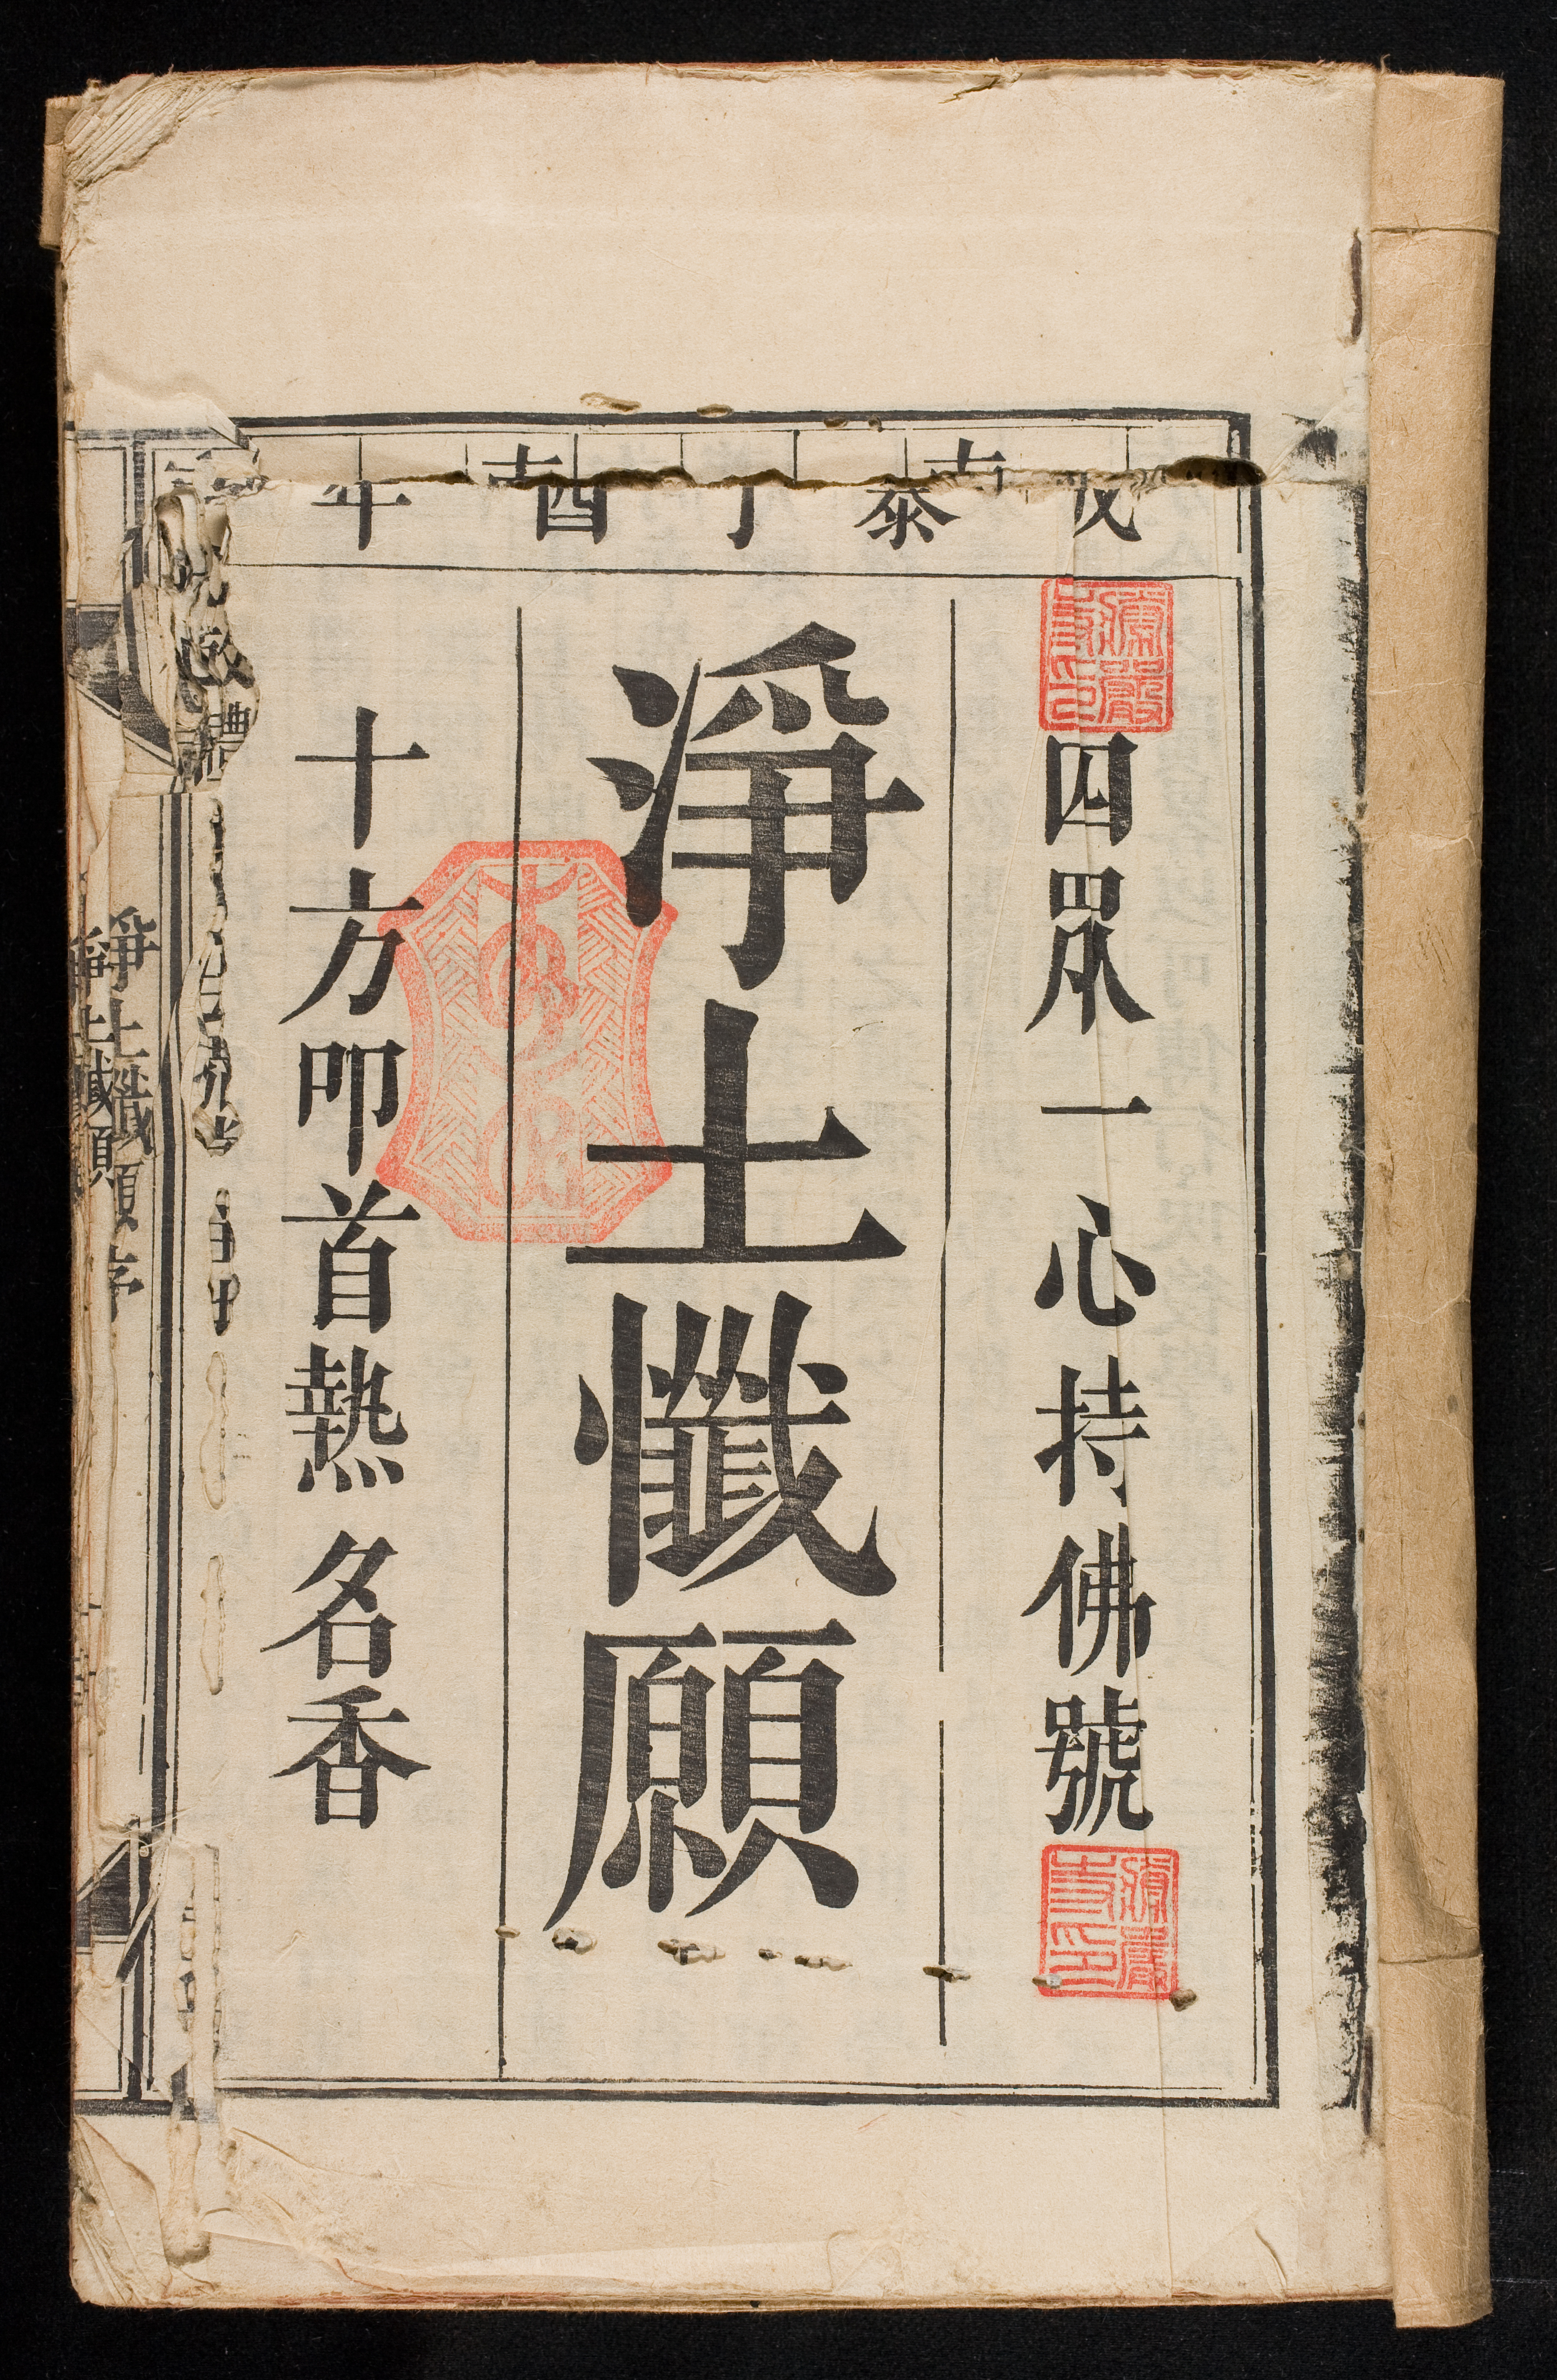 成泰丁酉年
四眾一心持佛號
淨土懺願
十方叩首熱名香
淨土懺願序